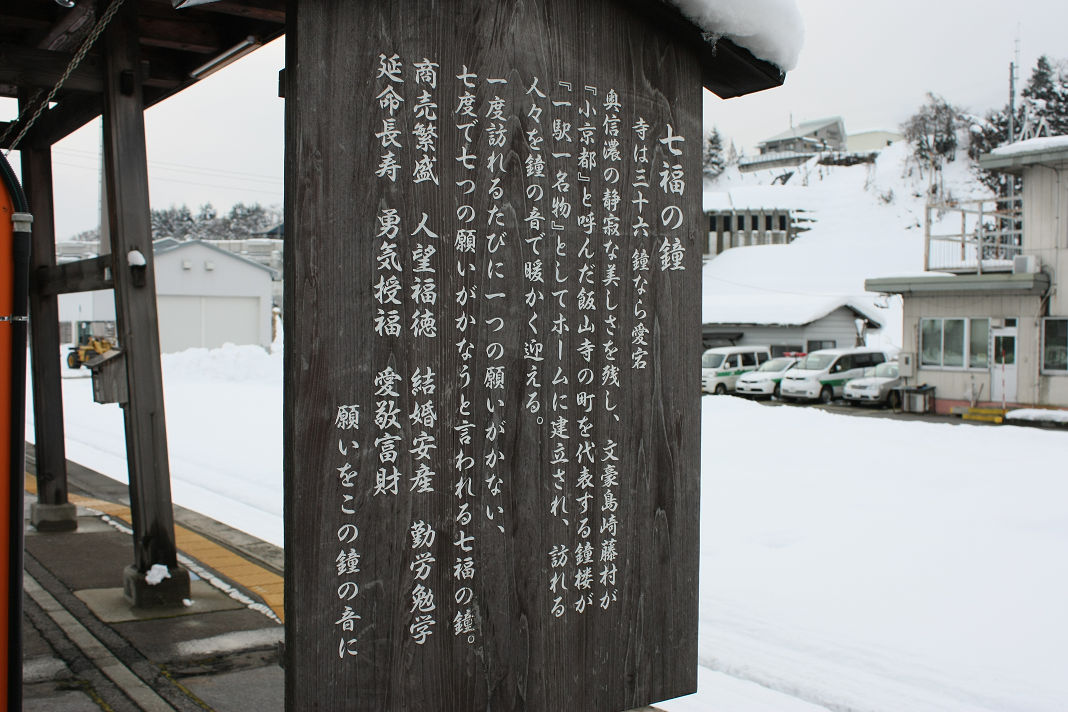 七福の鐘
寺は三十六 鐘なら愛宕
奥信濃の静寂な美しさを残し、文豪島崎藤村が
『小京都』と呼んだ飯山寺の町を代表する鐘楼が
『一駅一名物』としてホームに建立され、訪れる
人々を鐘の音で暖かく迎える。
一度訪れるたびに一つの願いがかない、
七度で七つの願いがかなうと言われる七福の鐘。
商売繁盛 人望福徳 結婚安産 勤労勉学
延命長寿 勇気授福 愛敬富財
願いをこの鐘の音に